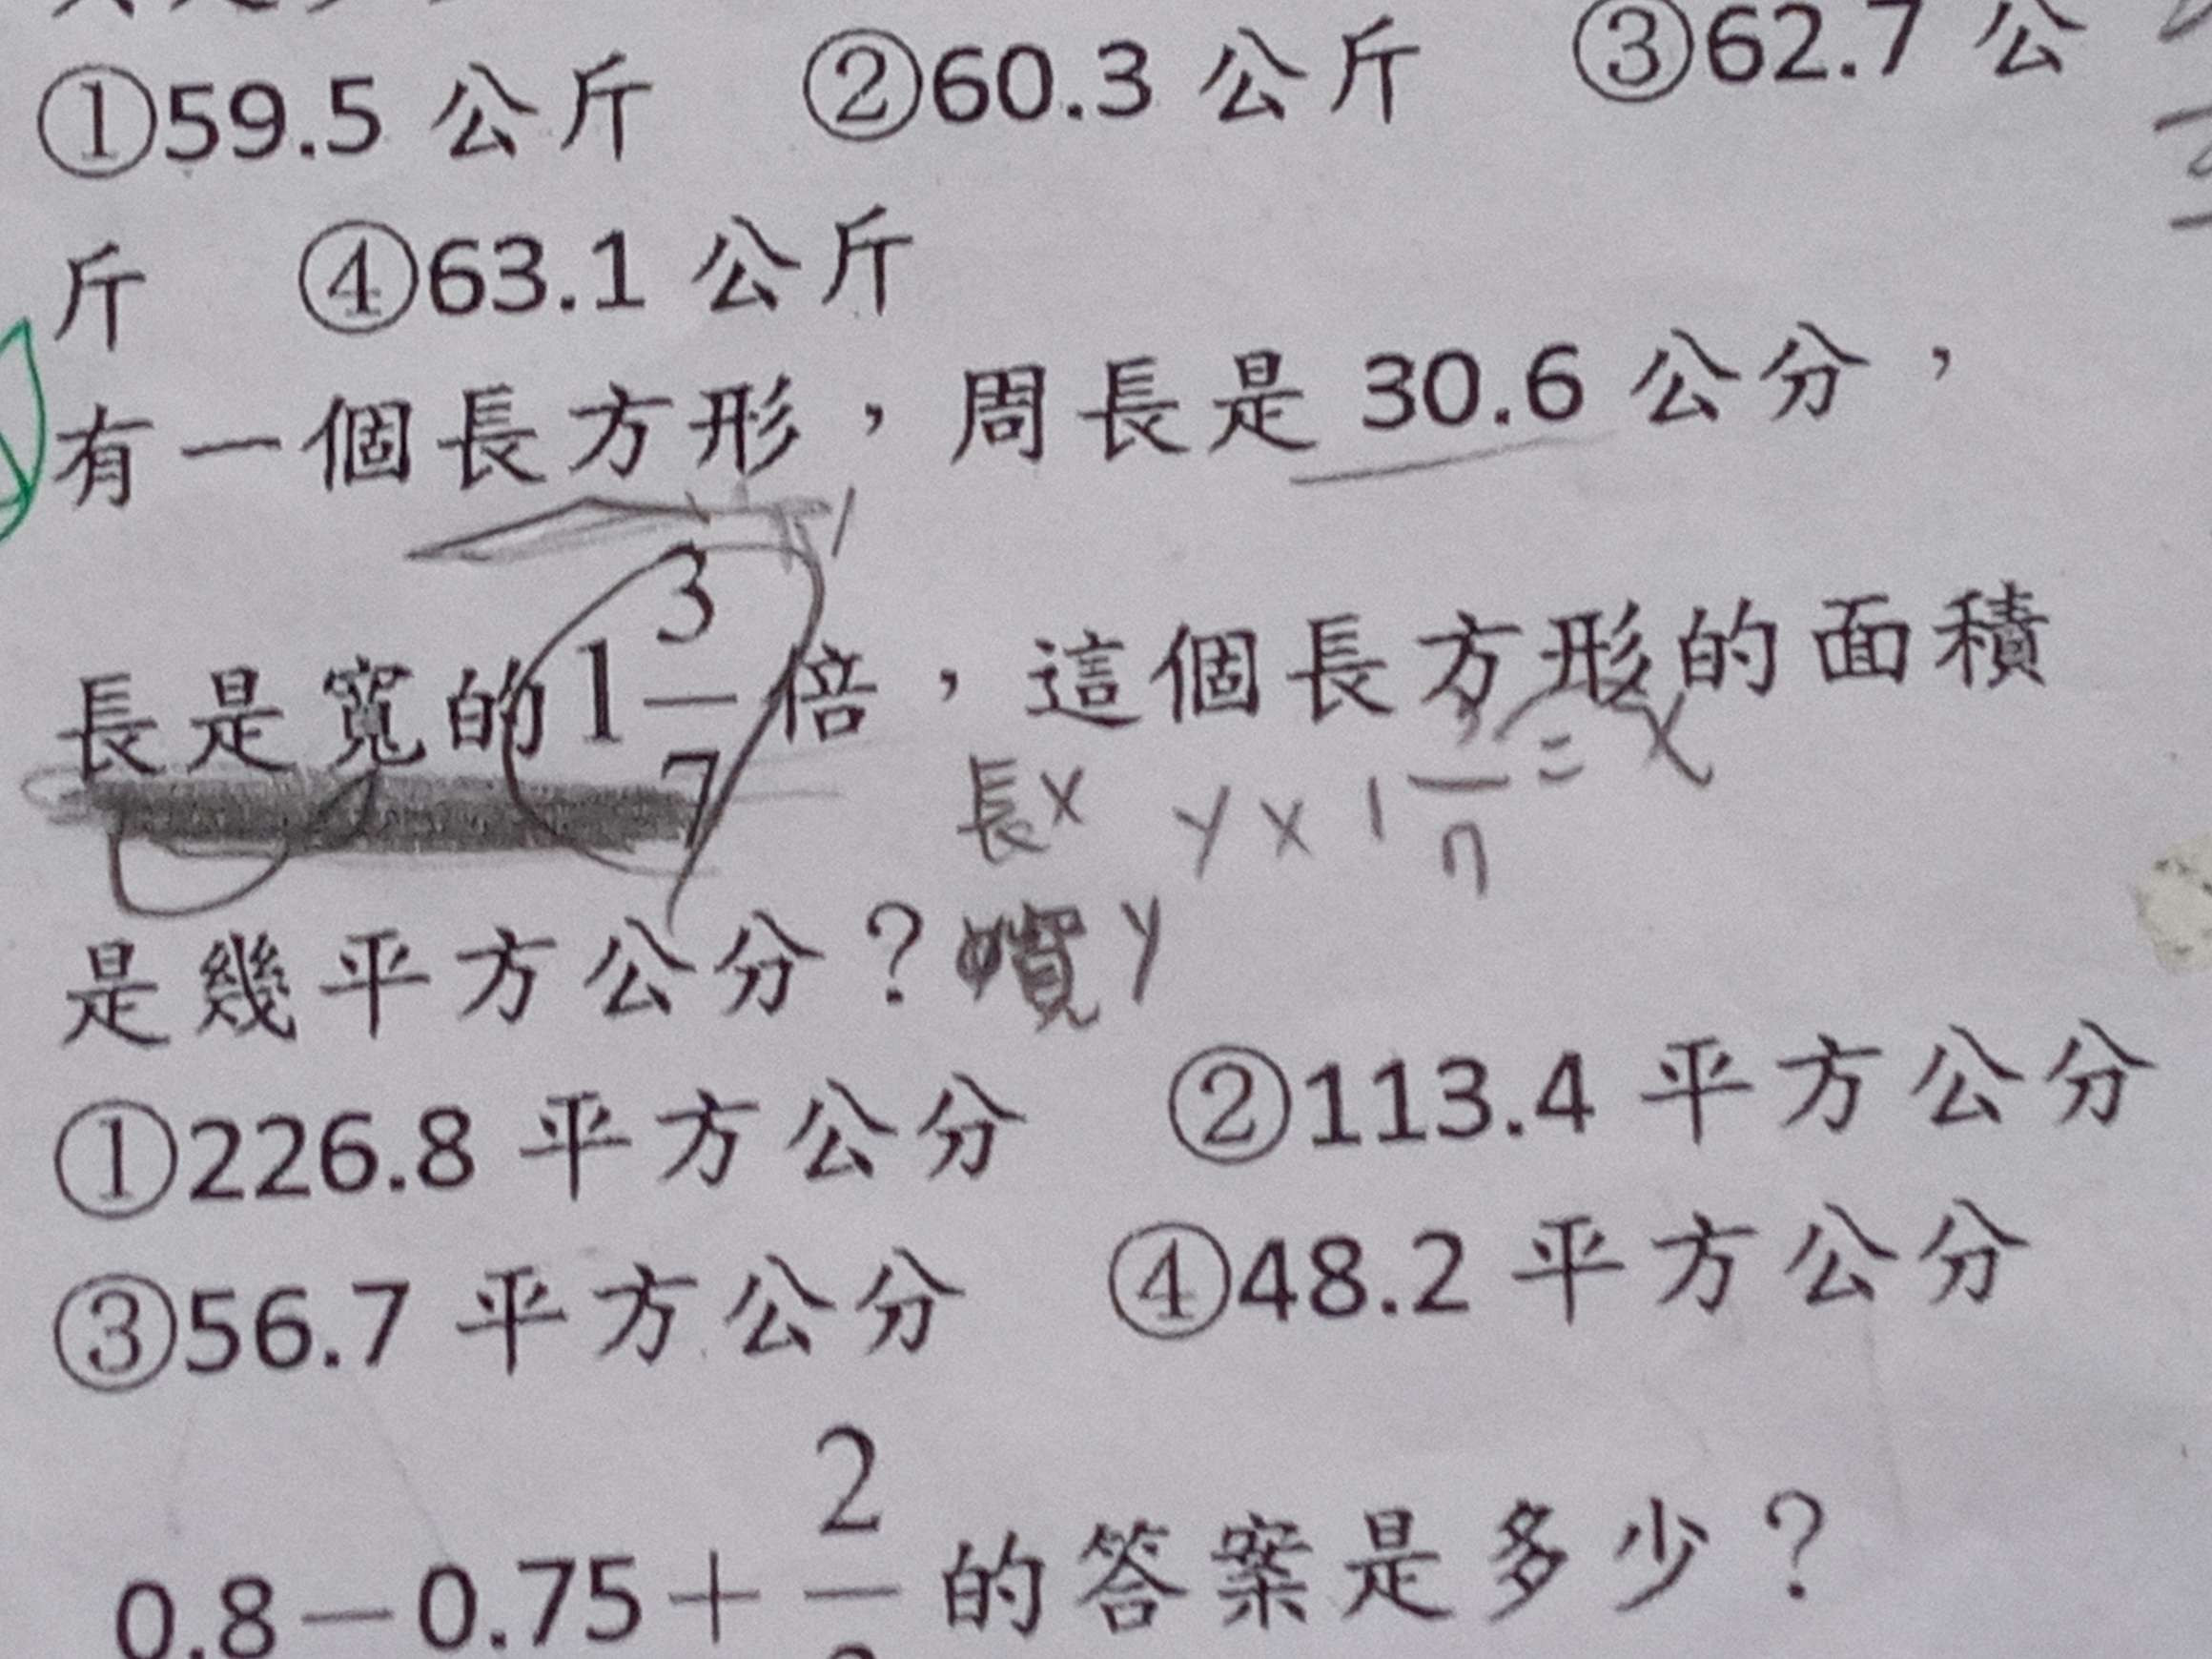 ①59.5 公斤 ②60.3 公斤 ③62.7 公
斤 ④63.1 公斤
有一個長方形，周長是 30.6 公分，
長是寬的 1 3/7 倍，這個長方形的面積
長x y x 1 3/7 = x
是幾平方公分？寬 y
①226.8 平方公分 ②113.4 平方公分
③56.7 平方公分 ④48.2 平方公分
0.8－0.75＋2/ 的答案是多少？